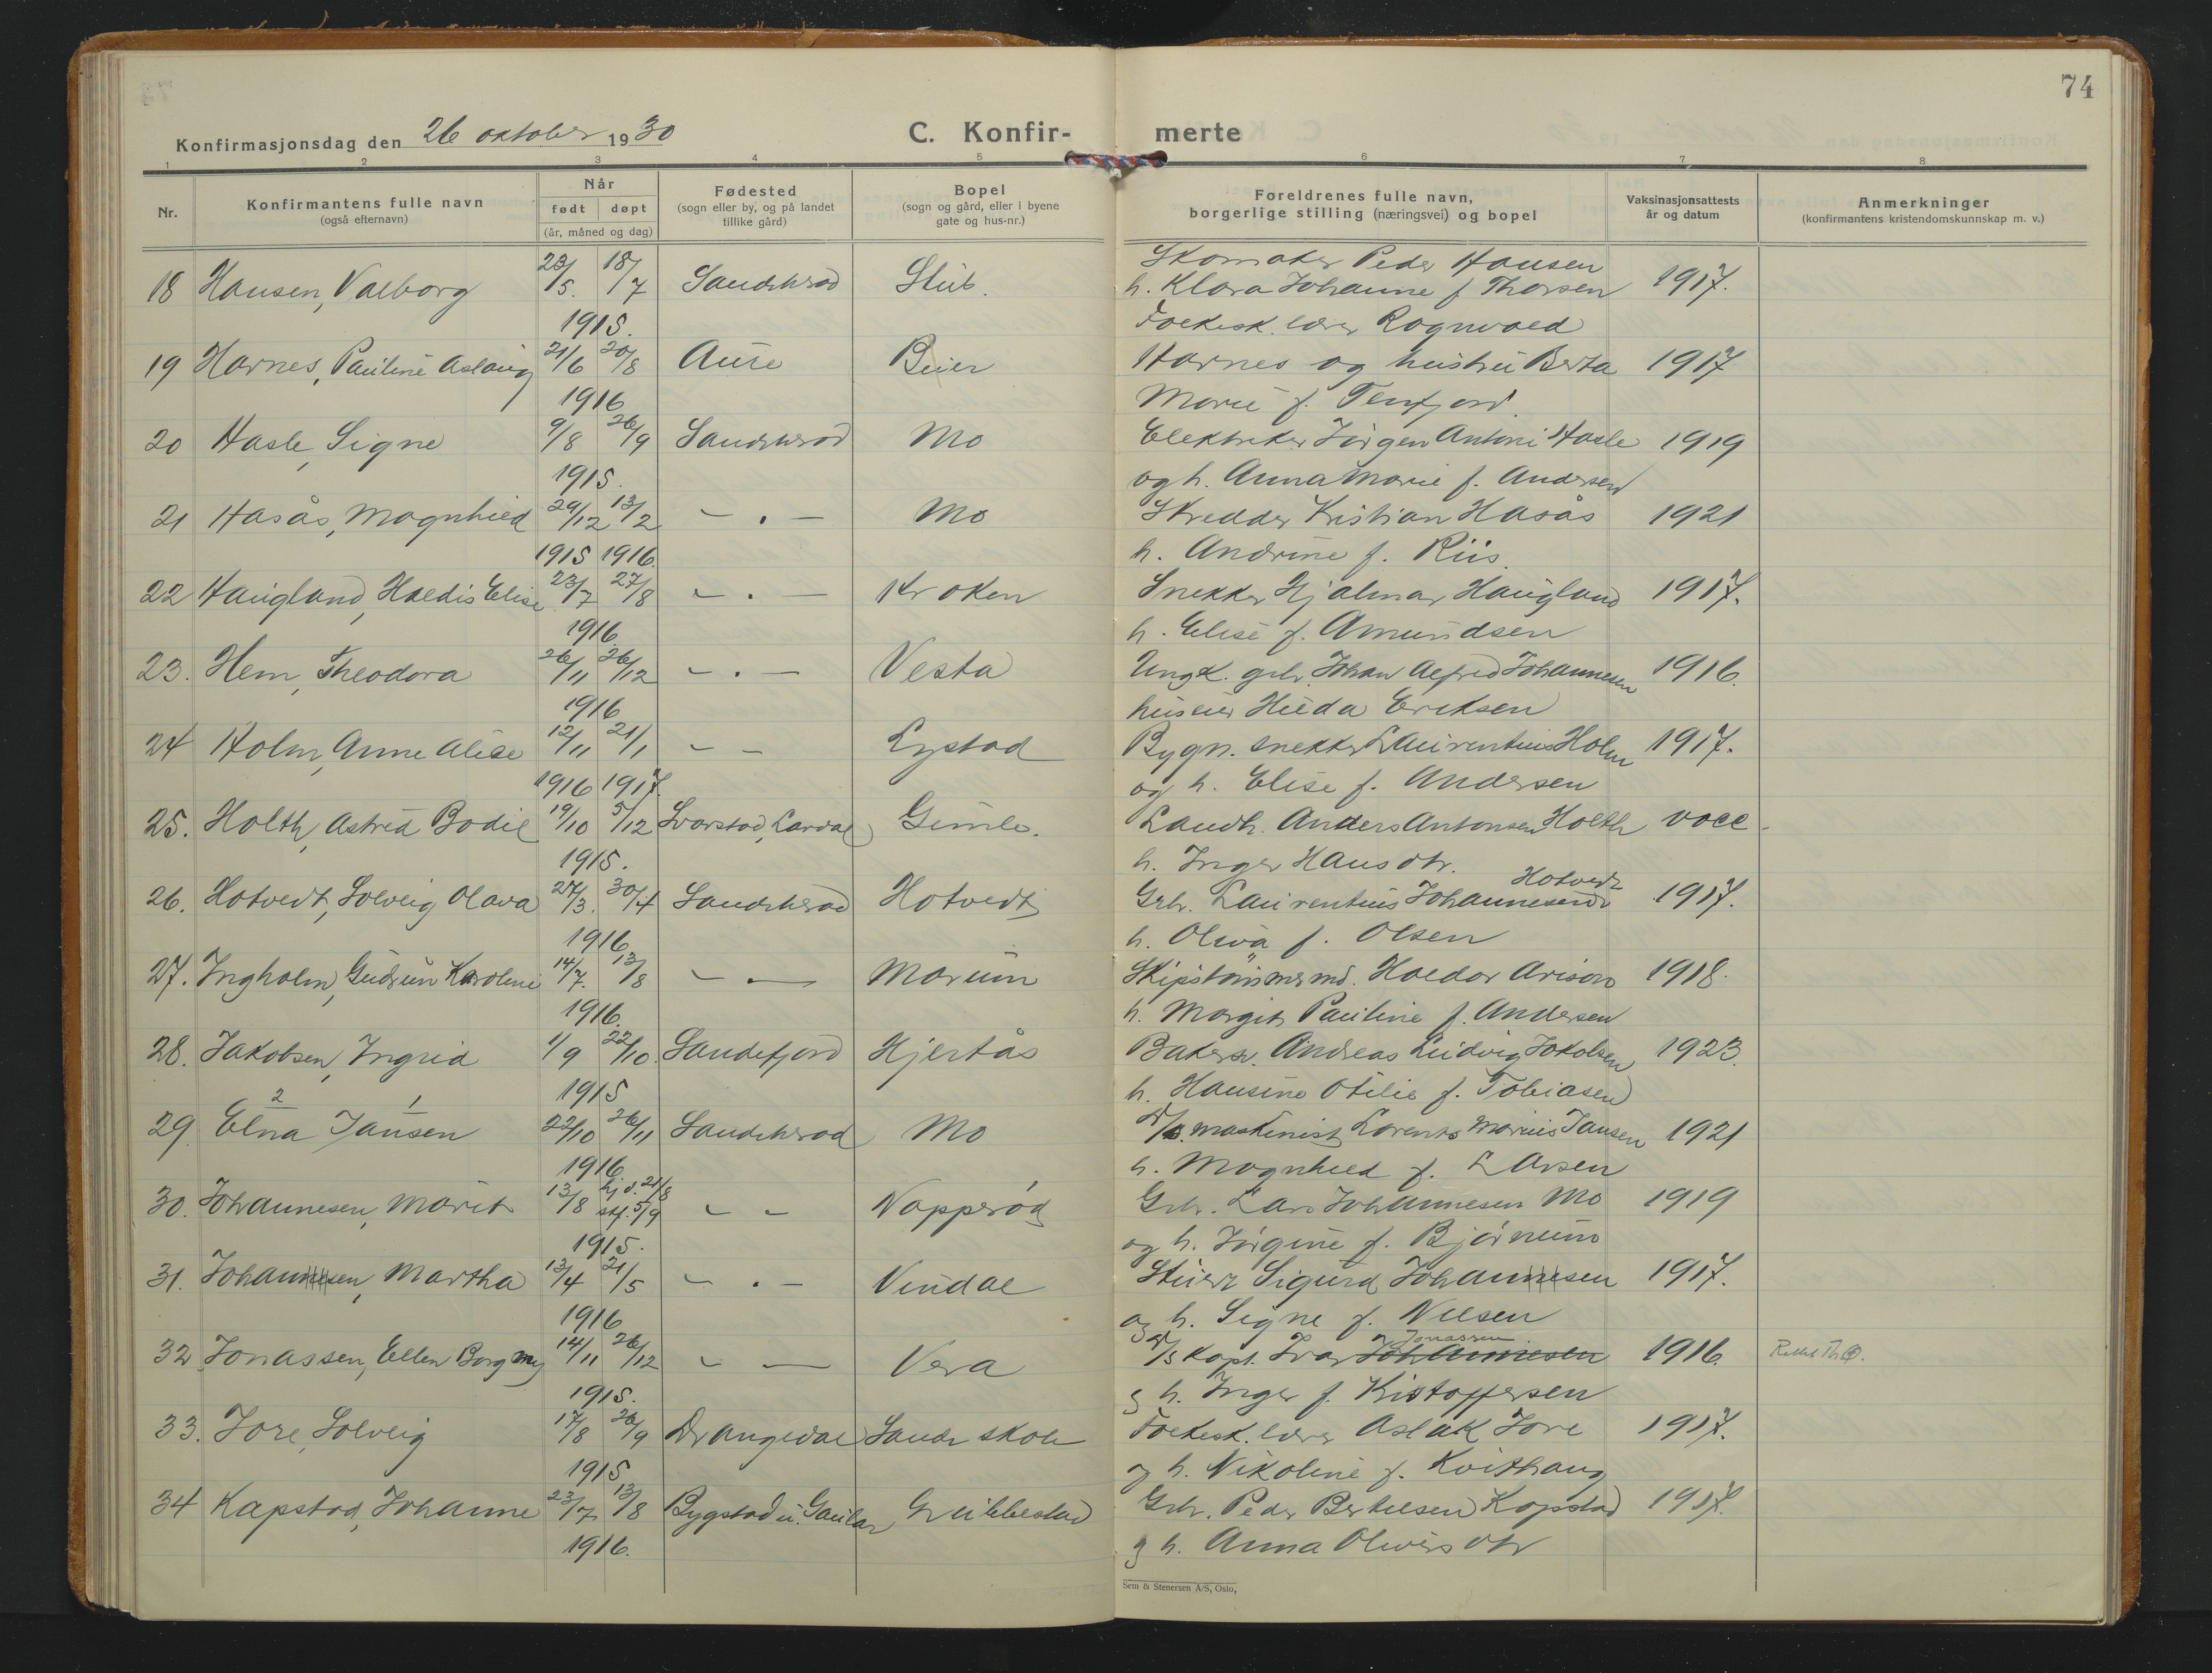 74
Konfirmasjonsdag den 26 oktober 1930
C. Konfir- merte
1 2 3 4 5 6 7 8
Nr.
Konfirmantens fulle navn
(også efternavn)
Når
født døpt
(år, måned og dag)
Fødested
(sogn eller by, og på landet
tillike gård)
Bopel
(sogn og gård, eller i byene
gate og hus-nr.)
Foreldrenes fulle navn,
borgerlige stilling (næringsvei) og bopel
Vaksinasjonsattests
år og datum
Anmerkninger
(konfirmantens kristendomskunnskap m. v.)
18 Hansen, Valborg 23/5. 18/7 Sandeherad Stub. Skomaker Peder Hansen
h. Klara Johanne f. Thorsen 1917.
1915. Folkesk. lærer Ragnvald
19 Harnes, Pauline Aslaug 21/6 20/8 Aure Beier Harnes og hustru Berta 1917
1916 Marie f. Tenfjord.
20 Hasle, Signe 9/8 26/9 Sandeherad Mo Elektriker Jørgen Antoni Hasle 1919
1915. og h. Anna Marie f. Andersen
21 Hasås, Magnhild 29/12 13/2 - . - Mo Skredder Kristian Hasås 1921
1915 1916. h. Andrine f. Riis.
22 Haugland, Haldis Elise 23/7 27/8 - . - Kroken Snekker Hjalmar Haugland 1917.
1916. h. Elise f. Amundsen
23. Hem, Theodora 26/11 26/12 - . - Vesta Ungk. grb. Johan Alfred Johannesen 1916.
1916 huseier Hilda Eriksen
24 Holm, Anne Alise 12/11 21/1 - - Lystad Bygn. snekker Laurentius Holm 1917.
1916 1917. og h. Elise f. Andersen
25. Holth, Astrid Bodil 19/10 5/12 Svarstad, Lardal Gimle. Landh. Anders Antonsen Holth vacc.
1915. h. Inger Hansdtr.
26. Hotvedt, Solveig Olava 27/3. 30/4 Sandeherad Hotvedt Grb. Laurentius Johannesen Hotvedt 1917.
1916 h. Oliva f. Olsen
27. Ingholm, Gudrun Karoline 14/7. 13/8 - . - Marum Skipstømmermd. Haldor Arison 1918.
1916. h. Margit Pauline f. Andersen
28. Jakobsen, Ingrid 1/9 22/10. Sandefjord Hjertås Baker Andreas Ludvig Jakobsen 1923.
1915 h. Hansine Otilie f. Tobiasen
2 1
29. Elna Jansen 22/10 26/11 Sandeherad Mo maskinist Lorents Marius Jansen 1921
1916 h. Magnhild f. Larsen
30. Johannesen, Marit 13/8 hj.d. 21/8 stf. 5/9 - - Napperød Grb. Lars Johannesen Mo 1919
1915. og h. Jørgine f. Bjørnum
31. Johannesen, Martha 13/4 21/5 - . - Vindal Stuert Sigurd Johannesen 1917.
1916 og h. Signe f. Nilsen
32 Jonassen, Ellen Borgny 14/11 26/12 - - Vera kapt. Ivar Johannesen Jonassen 1916.
1915. og h. Inger f. Kristoffersen
33. Jore, Solveig 17/8 26/9 Drangedal Sande skole Folkesk. lærer Aslak Jore 1917.
1915 og h. Nikoline f. Kvithaug
34 Kapstad, Johanne 23/7 13/8 Bygstad i Gaular Grubbestad Grb. Peder Bertelsen Kapstad 1917.
1916. og h. Anna Oliversdtr
Sem & Stenersen A/S, Oslo.